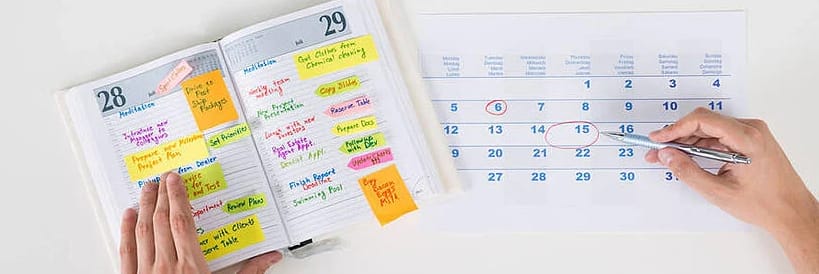 28
Juli
Special Cakes
Meditation
Drive to
Post
Ship
Packages
Introduce new
Manager to
Colleagues
Set Priorities
Prepare New Milestone
Project Plan
from Dealer
and Test
Review Plans
with Clients
Reserve Table
29
Juli
Meditation
Get Clothes from
Chemical cleaning
Weekly team
meeting
Copy Slides
New Project
Presentation
Reserve Table
Lunch with new
Investors
Prepare Docs
Real Estate
Agent Appt.
Followup
with Dev
Dentist Appt.
Finish Report
Deadline
Buy
Bacon
Eggs
Milk
Swimming Pool
Monday Tuesday Wednesday Thursday Friday Saturday Sunday
1 2 3 4
5 6 7 8 9 10 11
12 13 14 15 16
20 21 22 23
27 28 29 30